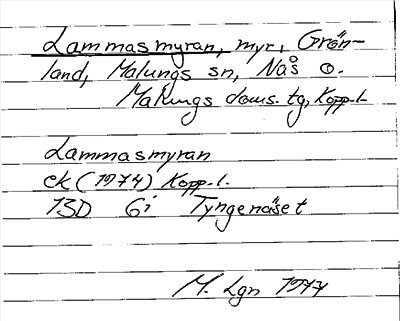 Lammasmyran, myr, Grön-
land, Malungs sn, Nås o.
Malungs doms. tg, Kopp. l.
Lammasmyran
ek (1974) Kopp. l.
13D 6i Tyngenäset
M. Lgn 1977